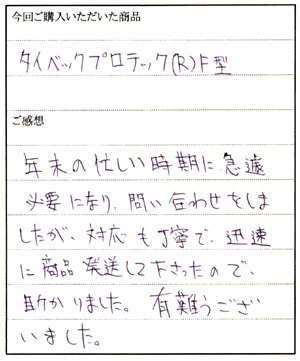 今回ご購入いただいた商品
タイベックプロテック(R)F型
ご感想
年末の忙しい時期に急遽
必要になり、問い合わせをしま
したが、対応も丁寧で、迅速
に商品発送して下さったので、
助かりました。有難うござ
いました。